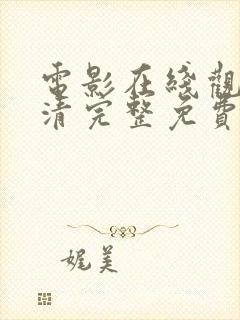 電影在綫觀
清完整免費
娓美